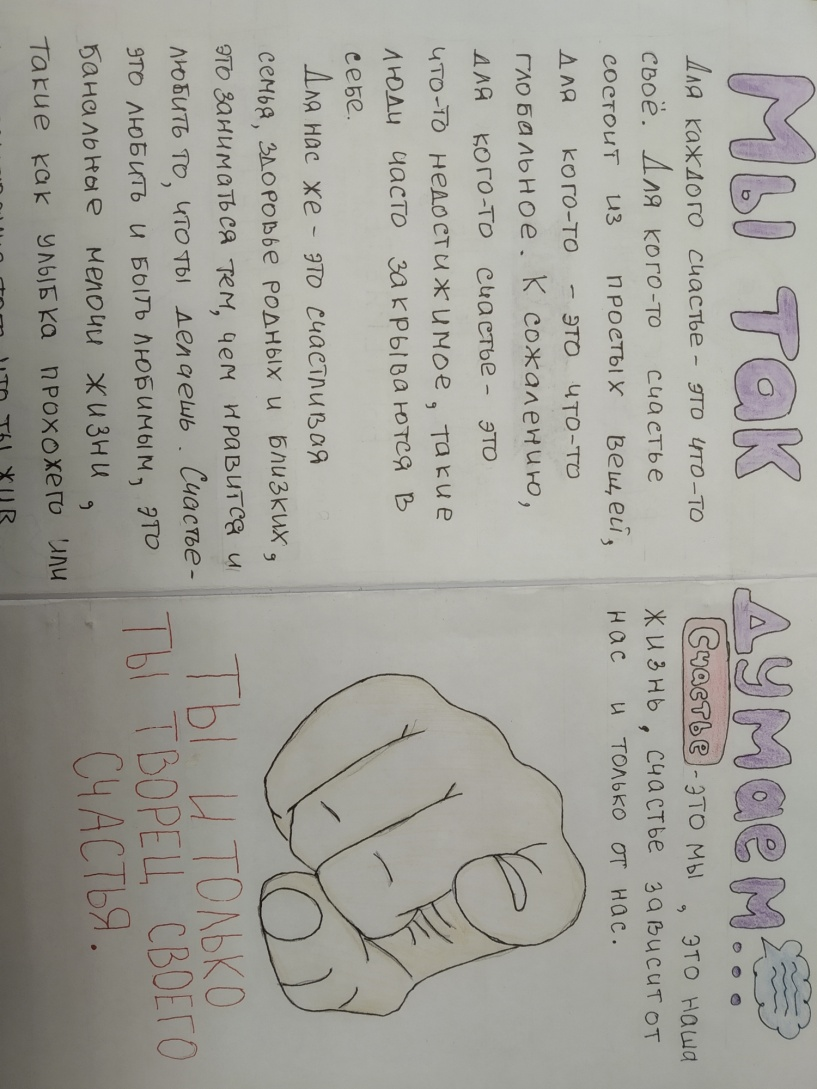 Мы так думаем...
Для каждого счастье - это что-то
своё. Для кого-то счастье
состоит из простых вещей,
для кого-то - это что-то
глобальное. К сожалению,
для кого-то счастье - это
что-то недостижимое, такие
люди часто закрываются в
себе.
Для нас же - это счастливая
семья, здоровье родных и близких,
это заниматься тем, чем нравится и
любить то, что ты делаешь. Счастье-
это любить и быть любимым, это
банальные мелочи жизни,
такие как улыбка прохожего или
что ты жив
Счастье - это мы, это наша
жизнь, счастье зависит от
нас и только от нас.
Ты и только
ты творец своего
счастья.